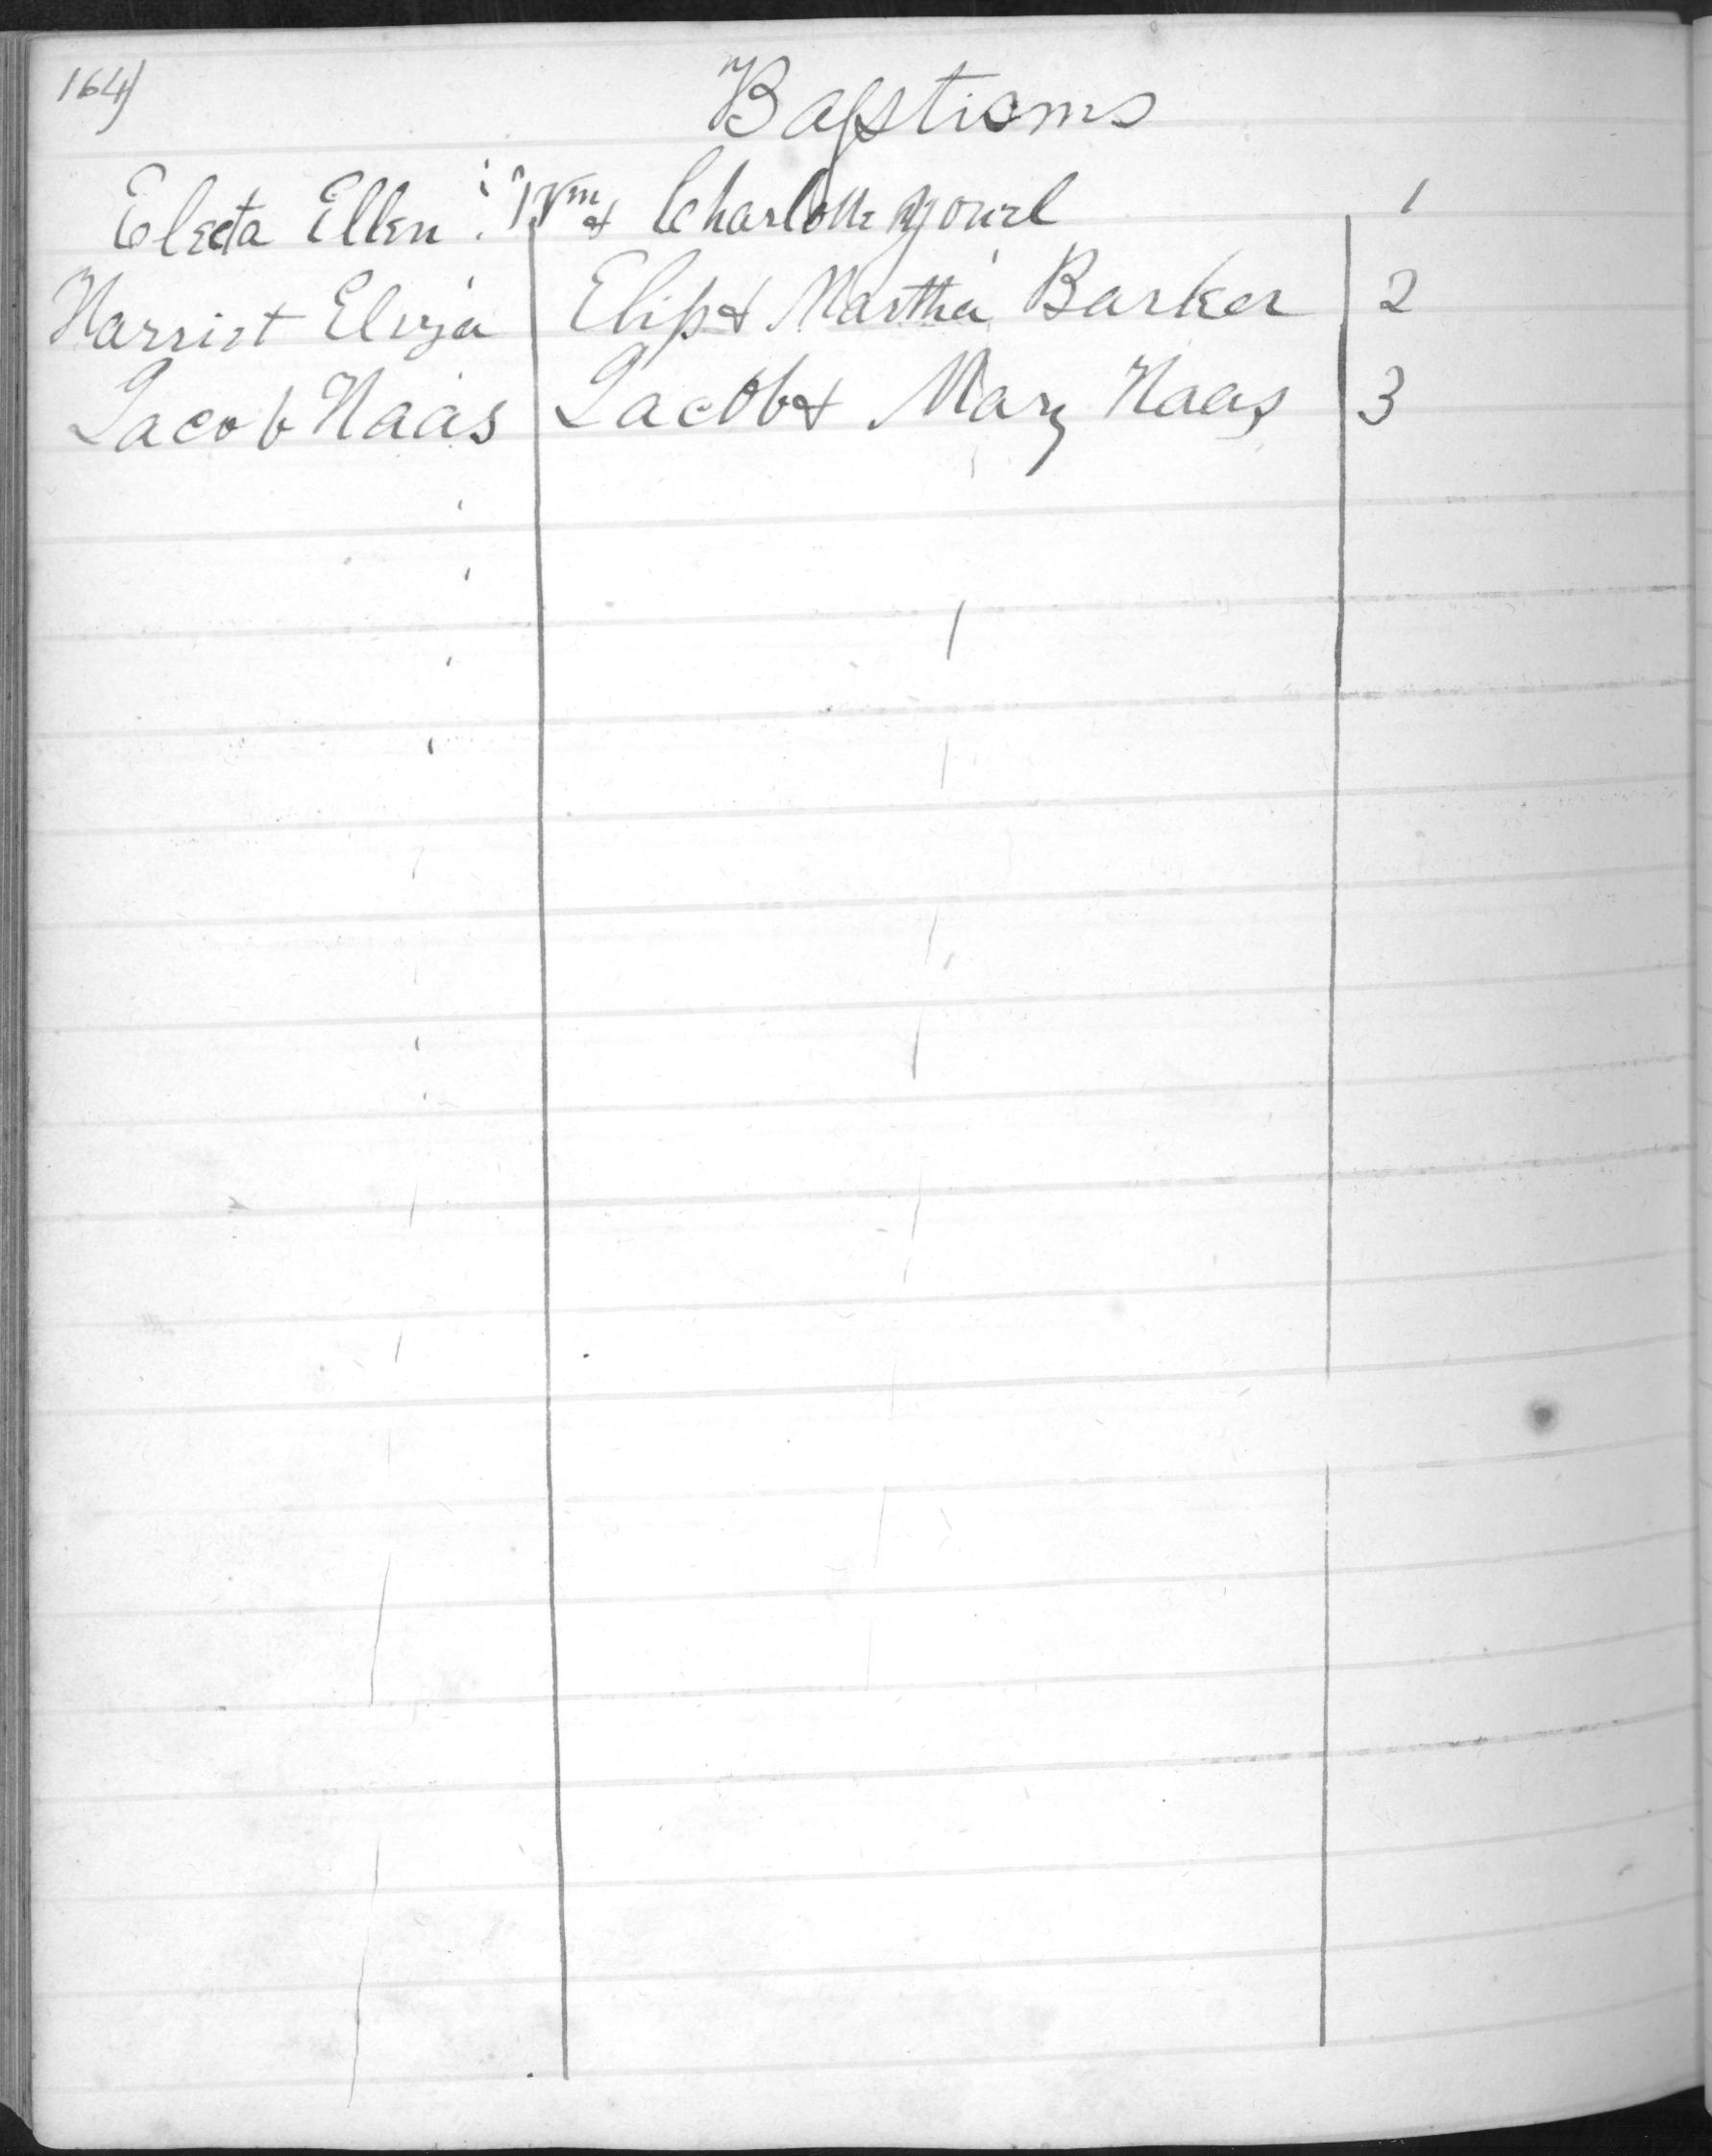 164)
Baptisms
Electa Ellen : Wm & Charlotte Youel 1
Harriet Eliza Elips & Martha Barker 2
Jacob Haas Jacob & Mary Haas 3